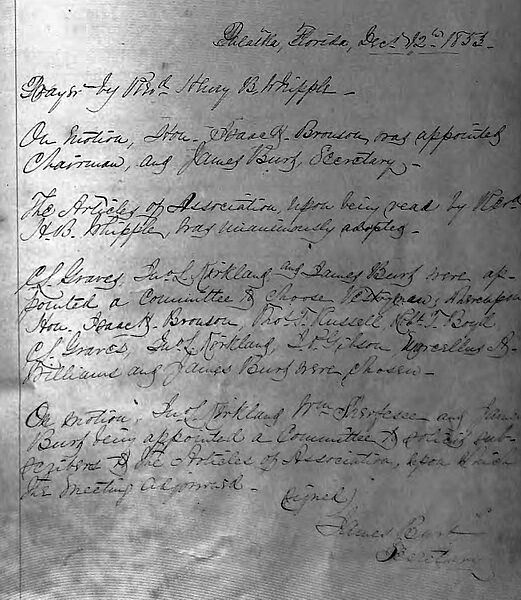 Palatka, Florida, Dec. 12th 1853.
Prayer by Revd. Henry B. Whipple.
On motion, Hon. Isaac H. Bronson was appointed
Chairman, and James Burt, Secretary.
The Articles of Association, upon being read by Revd.
H. B. Whipple, was unanimously adopted.
C. S. Graves, Jno. L. Kirkland and James Burt were ap-
pointed a Committee to choose Vestrymen, whereupon
Hon. Isaac H. Bronson, Thos. T. Russell, Robt. T. Boyd,
C. S. Graves, Jno. L. Kirkland, Gibson, Marcellus A.
Williams and James Burt were chosen.
On motion, Jno. L. Kirkland, Wm. and James
Burt being appointed a Committee to solicit sub-
scribers to the Articles of Association, upon which
the meeting adjourned.
(signed)
James Burt
Secretary